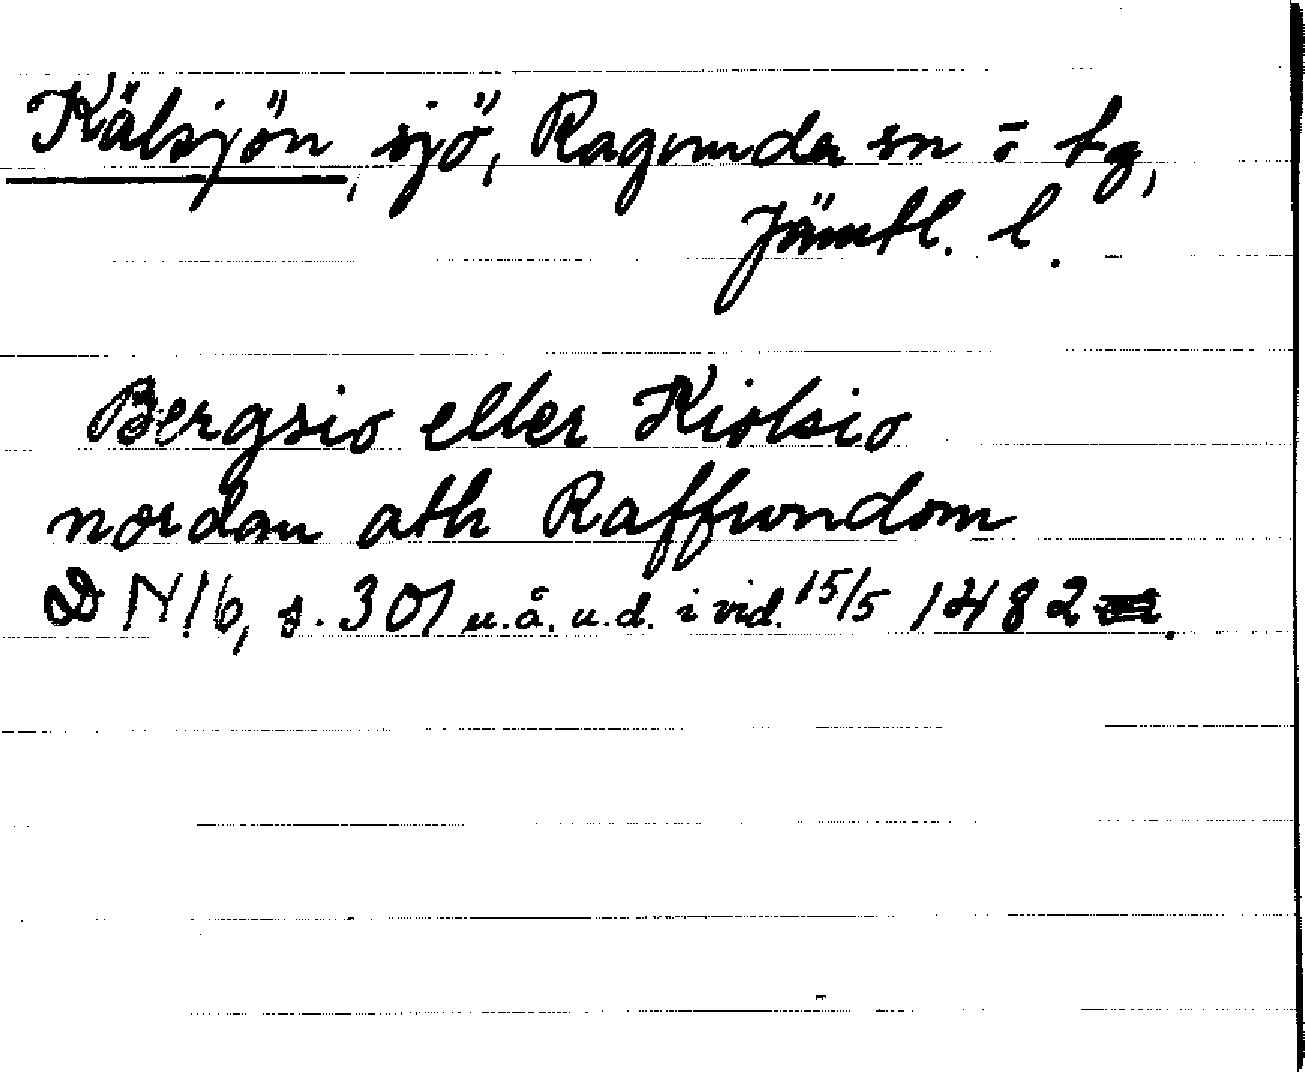 Kälsjön, sjö, Ragunda sn o. tg,
Jämtl. l.
Bergsio eller Kiolsio
nordan ath Raffwndom
DN 16, s. 301 u.å. u.d. i vid. 15/5 1482.